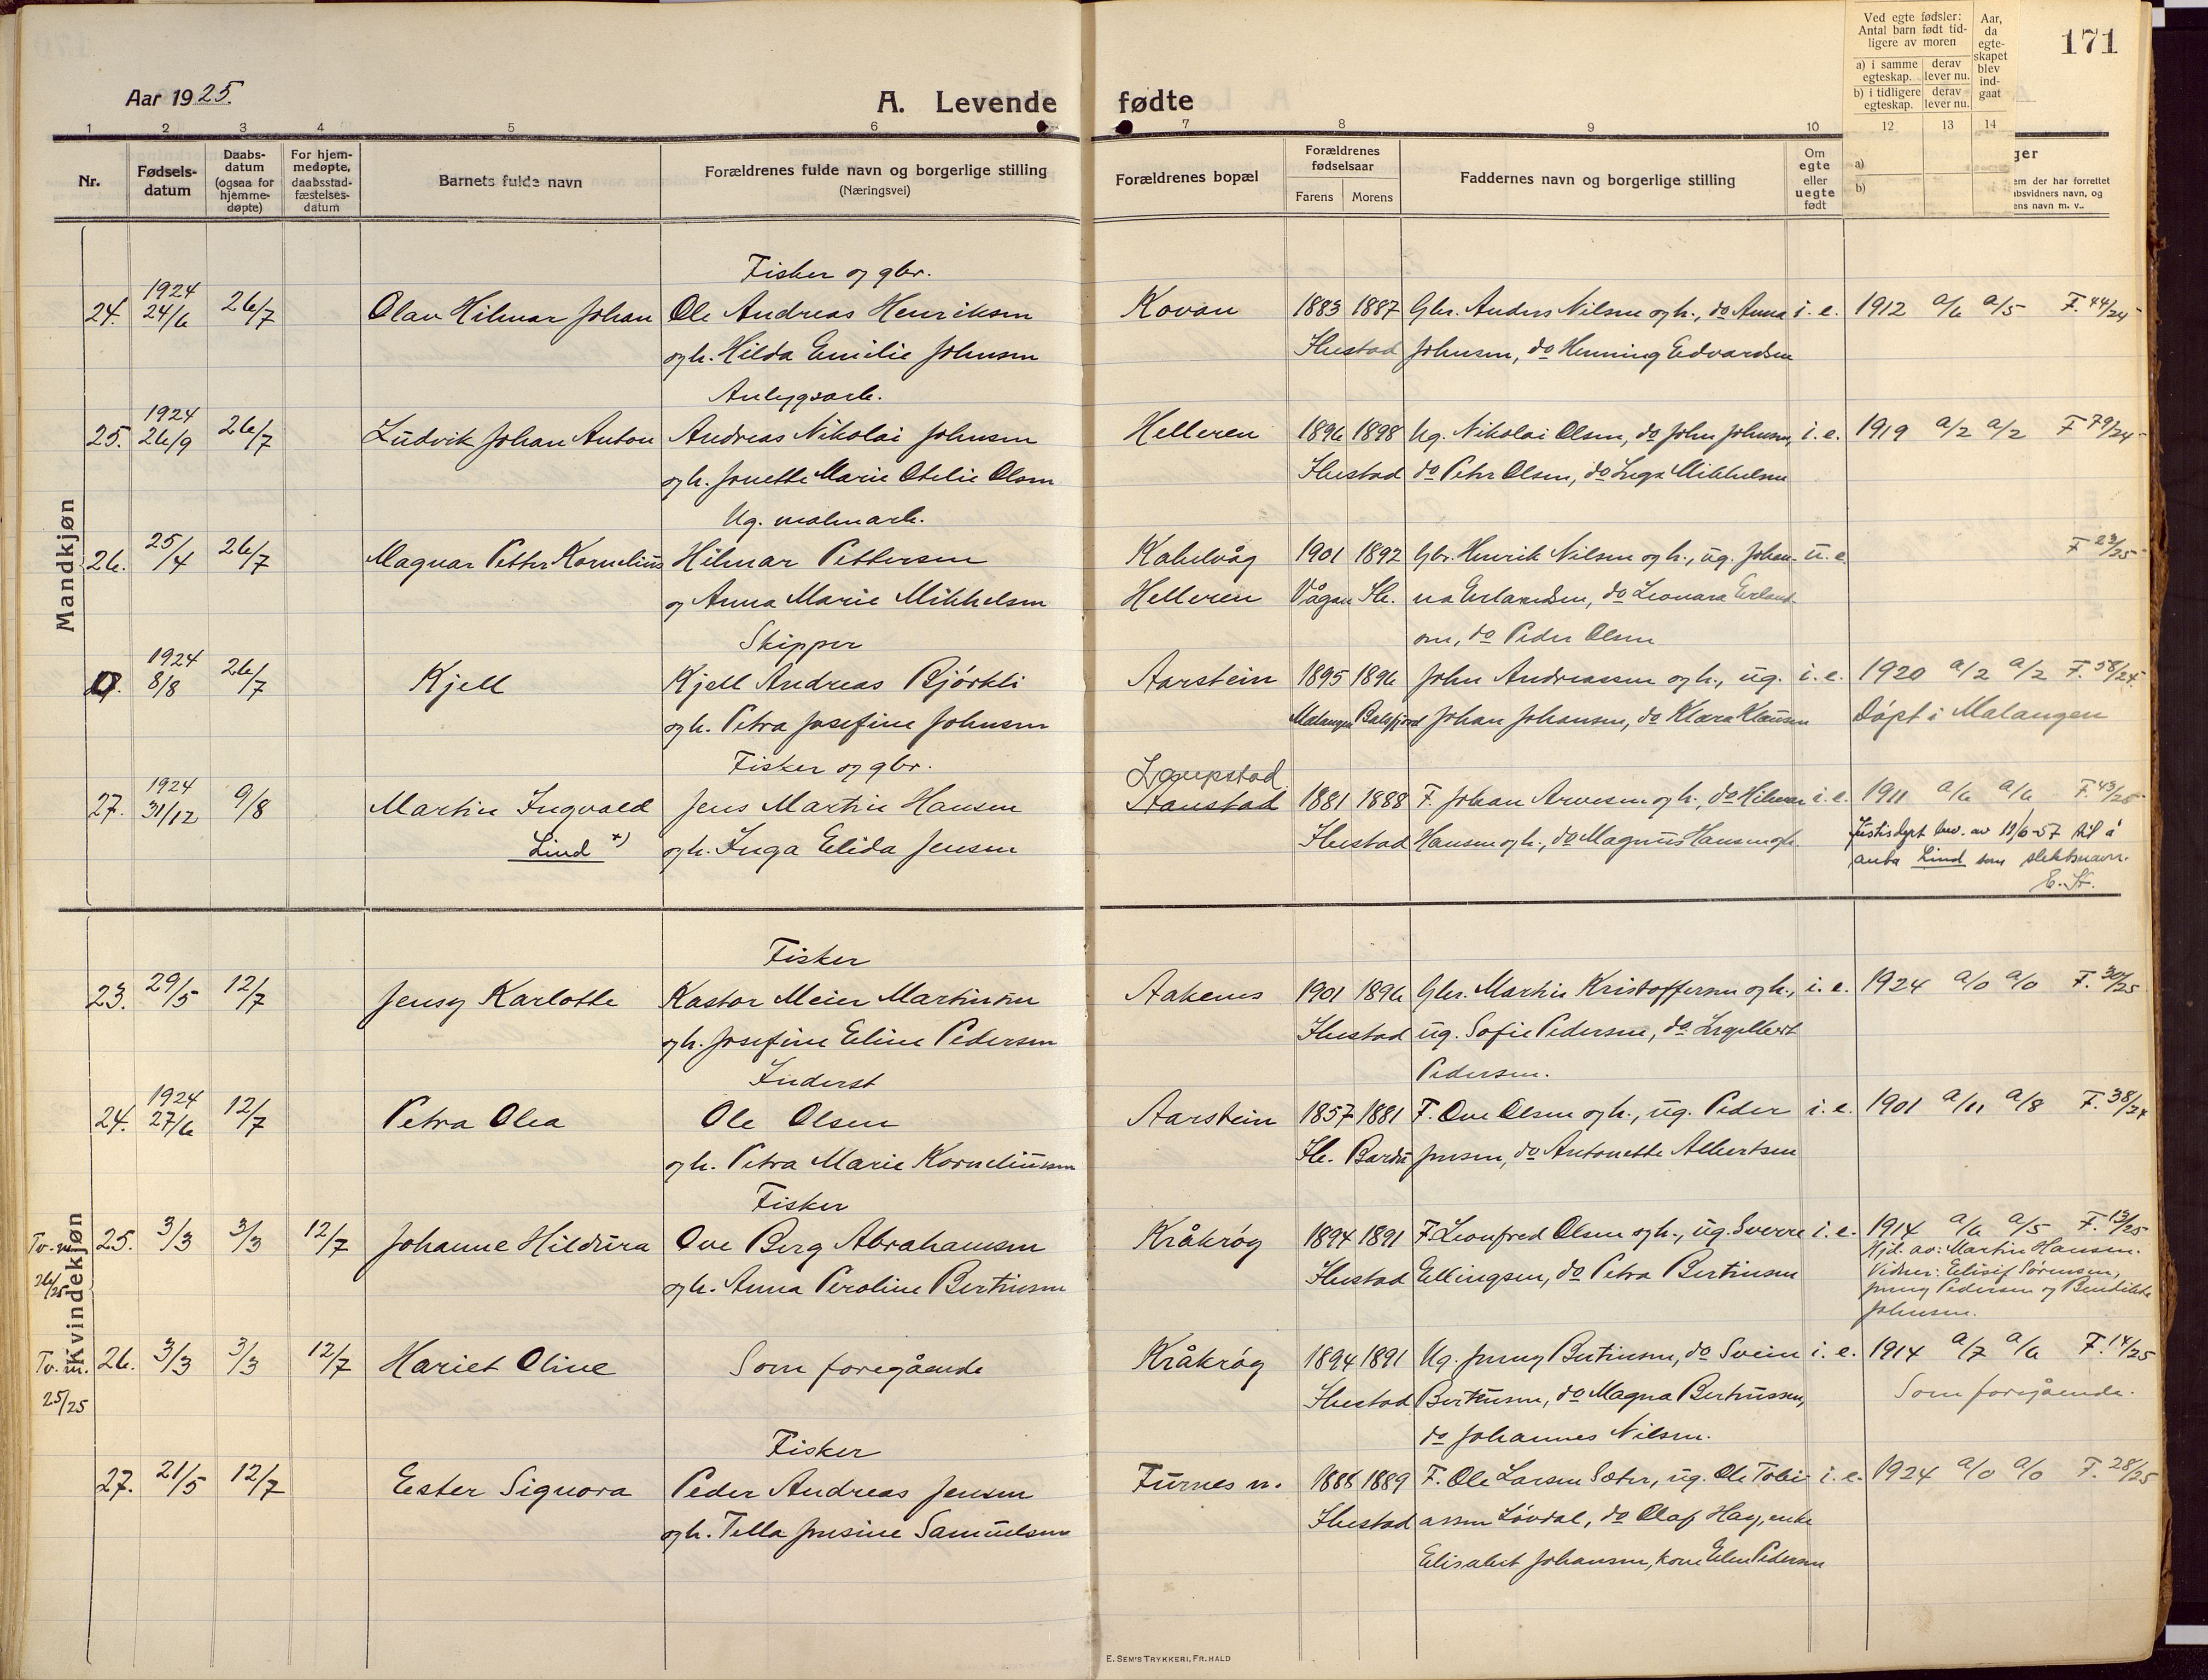 Aar 1925.
A. Levende fødte
171
Ved egte fødsler: Antal barn født tidligere av moren
Aar, da egteskapet blev indgaat
a) i samme egteskap. derav lever nu.
b) i tidligere egteskap. derav lever nu.
1 2 3 4 5 6 7 8 9 10 12 13 14
Nr.
Fødsels-datum
Daabs-datum (ogsaa for hjemme-døpte)
For hjem-medøpte, daabsstad-fæstelses-datum
Barnets fulde navn
Forældrenes fulde navn og borgerlige stilling
(Næringsvei)
Forældrenes bopæl
Forældrenes fødselsaar
Farens Morens
Faddernes navn og borgerlige stilling
Om egte eller uegte født
a)
b)
ger
em der har forrettet
bsvidners navn, og
ens navn m. v..
Mandkjøn
Fisker og gbr.
24. 1924 24/6 26/7 Olav Hilmar Johan Ole Andreas Henriksen Kovan 1883 1887 Gbr. Anders Nilsen og h., do Anna i. e. 1912 a/6 a/5 F. 44/24
og h. Hilda Emilie Johnsen Ibestad Johnsen, do Henning Edvardsen
Anlegsarb.
25. 1924 26/9 26/7 Ludvik Johan Anton Andreas Nikolai Johnsen Helleren 1896 1898 Ug. Nikolai Olsen, do John Johnsen, i. e. 1919 a/2 a/2 F 79/24
og h. Jonette Marie Otelie Olsen Ibestad do Peter Olsen, do Inga Mikkelsen
Ug. malmarb.
26. 25/4 26/7 Magnar Petter Kornelius Hilmar Pettersen Kabelvåg 1901 1892 Gbr. Henrik Nilsen og h., ug. Johan- u. e. F 23/25
og Anna Marie Mikkelsen Helleren Vågan Ib. na Erlandsen, do Leonara Erland-
sen, do Peder Olsen
Skipper
0. 1924 8/8 26/7 Kjell Kjell Andreas Bjørkli Aarstein 1895 1896 John Andreassen og h., ug. i. e. 1920 a/2 a/2 F. 58/24.
og h. Petra Josefine Johnsen Malangen Balsfjord Johan Johansen, do Klara Klausen Døpt i Malangen
Fisker og gbr.
Laupstad
27. 1924 31/12 9/8 Martin Ingvald Jens Martin Hansen Stanstad 1881 1888 F. Johan Arnesen og h., do Hilmar i. e. 1911 a/6 a/6 F. 43/25
Lind *) og h. Inga Elida Jensen Ibestad Hansen og h., do Magnus Hansen og h. Justisdept bev. av 19/6-57 til å
anta Lind som slektsnavn.
E. St.
Kvindekjøn
Fisker
23. 29/5 12/7 Jensy Karlotte Kastor Meier Martinsen Aakenes 1901 1896 Gbr. Martin Kristoffersen og h., i. e. 1924 a/0 a/0 F. 30/25
og h. Josefine Eline Pedersen Ibestad ug. Sofie Pedersen, do Ingebert
Pedersen.
Inderst
24. 1924 27/6 12/7 Petra Olea Ole Olsen Aarstein 1857 1881 F. Ove Olsen og h., ug. Peder i. e. 1901 a/11 a/8 F. 38/24
og h. Petra Marie Korneliussen Ib. Bardu Jensen, do Antonette Albertsen
Fisker
Tv. m. 26/25 25. 3/3 3/3 12/7 Johanne Hildura Ove Berg Abrahamsen Kråkrøg 1894 1891 F. Leonfred Olsen og h., ug. Sverre i. e. 1914 a/6 a/5 F. 13/25
og h. Anna Peroline Bertinsen Ibestad Ellingsen, do Petra Bertinsen Hjd. av: Martin Hansen.
Vidner: Elisif Sørensen,
Jenny Pedersen og Bendikte
Johnsen.
Tv. m. 25/25 26. 3/3 3/3 12/7 Hariet Oline Som foregående Kråkrøg 1894 1891 Ug. Jenny Bertinsen, do Svein i. e. 1914 a/7 a/6 F. 14/25
Ibestad Bertinsen, do Magna Bertinssen, Som foregående.
do Johannes Nilsen.
Fisker
27. 21/5 12/7 Ester Signora Peder Andreas Jensen Furnes n. 1888 1889 F. Ole Larsen Sæter, ug. Ole Tobi- i. e. 1924 a/0 a/0 F. 28/25
og h. Tella Jensine Samuelsen Ibestad assen Løvdal, do Olaf Hay, enke
Elisabet Johansen, kone Elen Pedersen
E. SEM'S TRYKKERI, FR.HALD